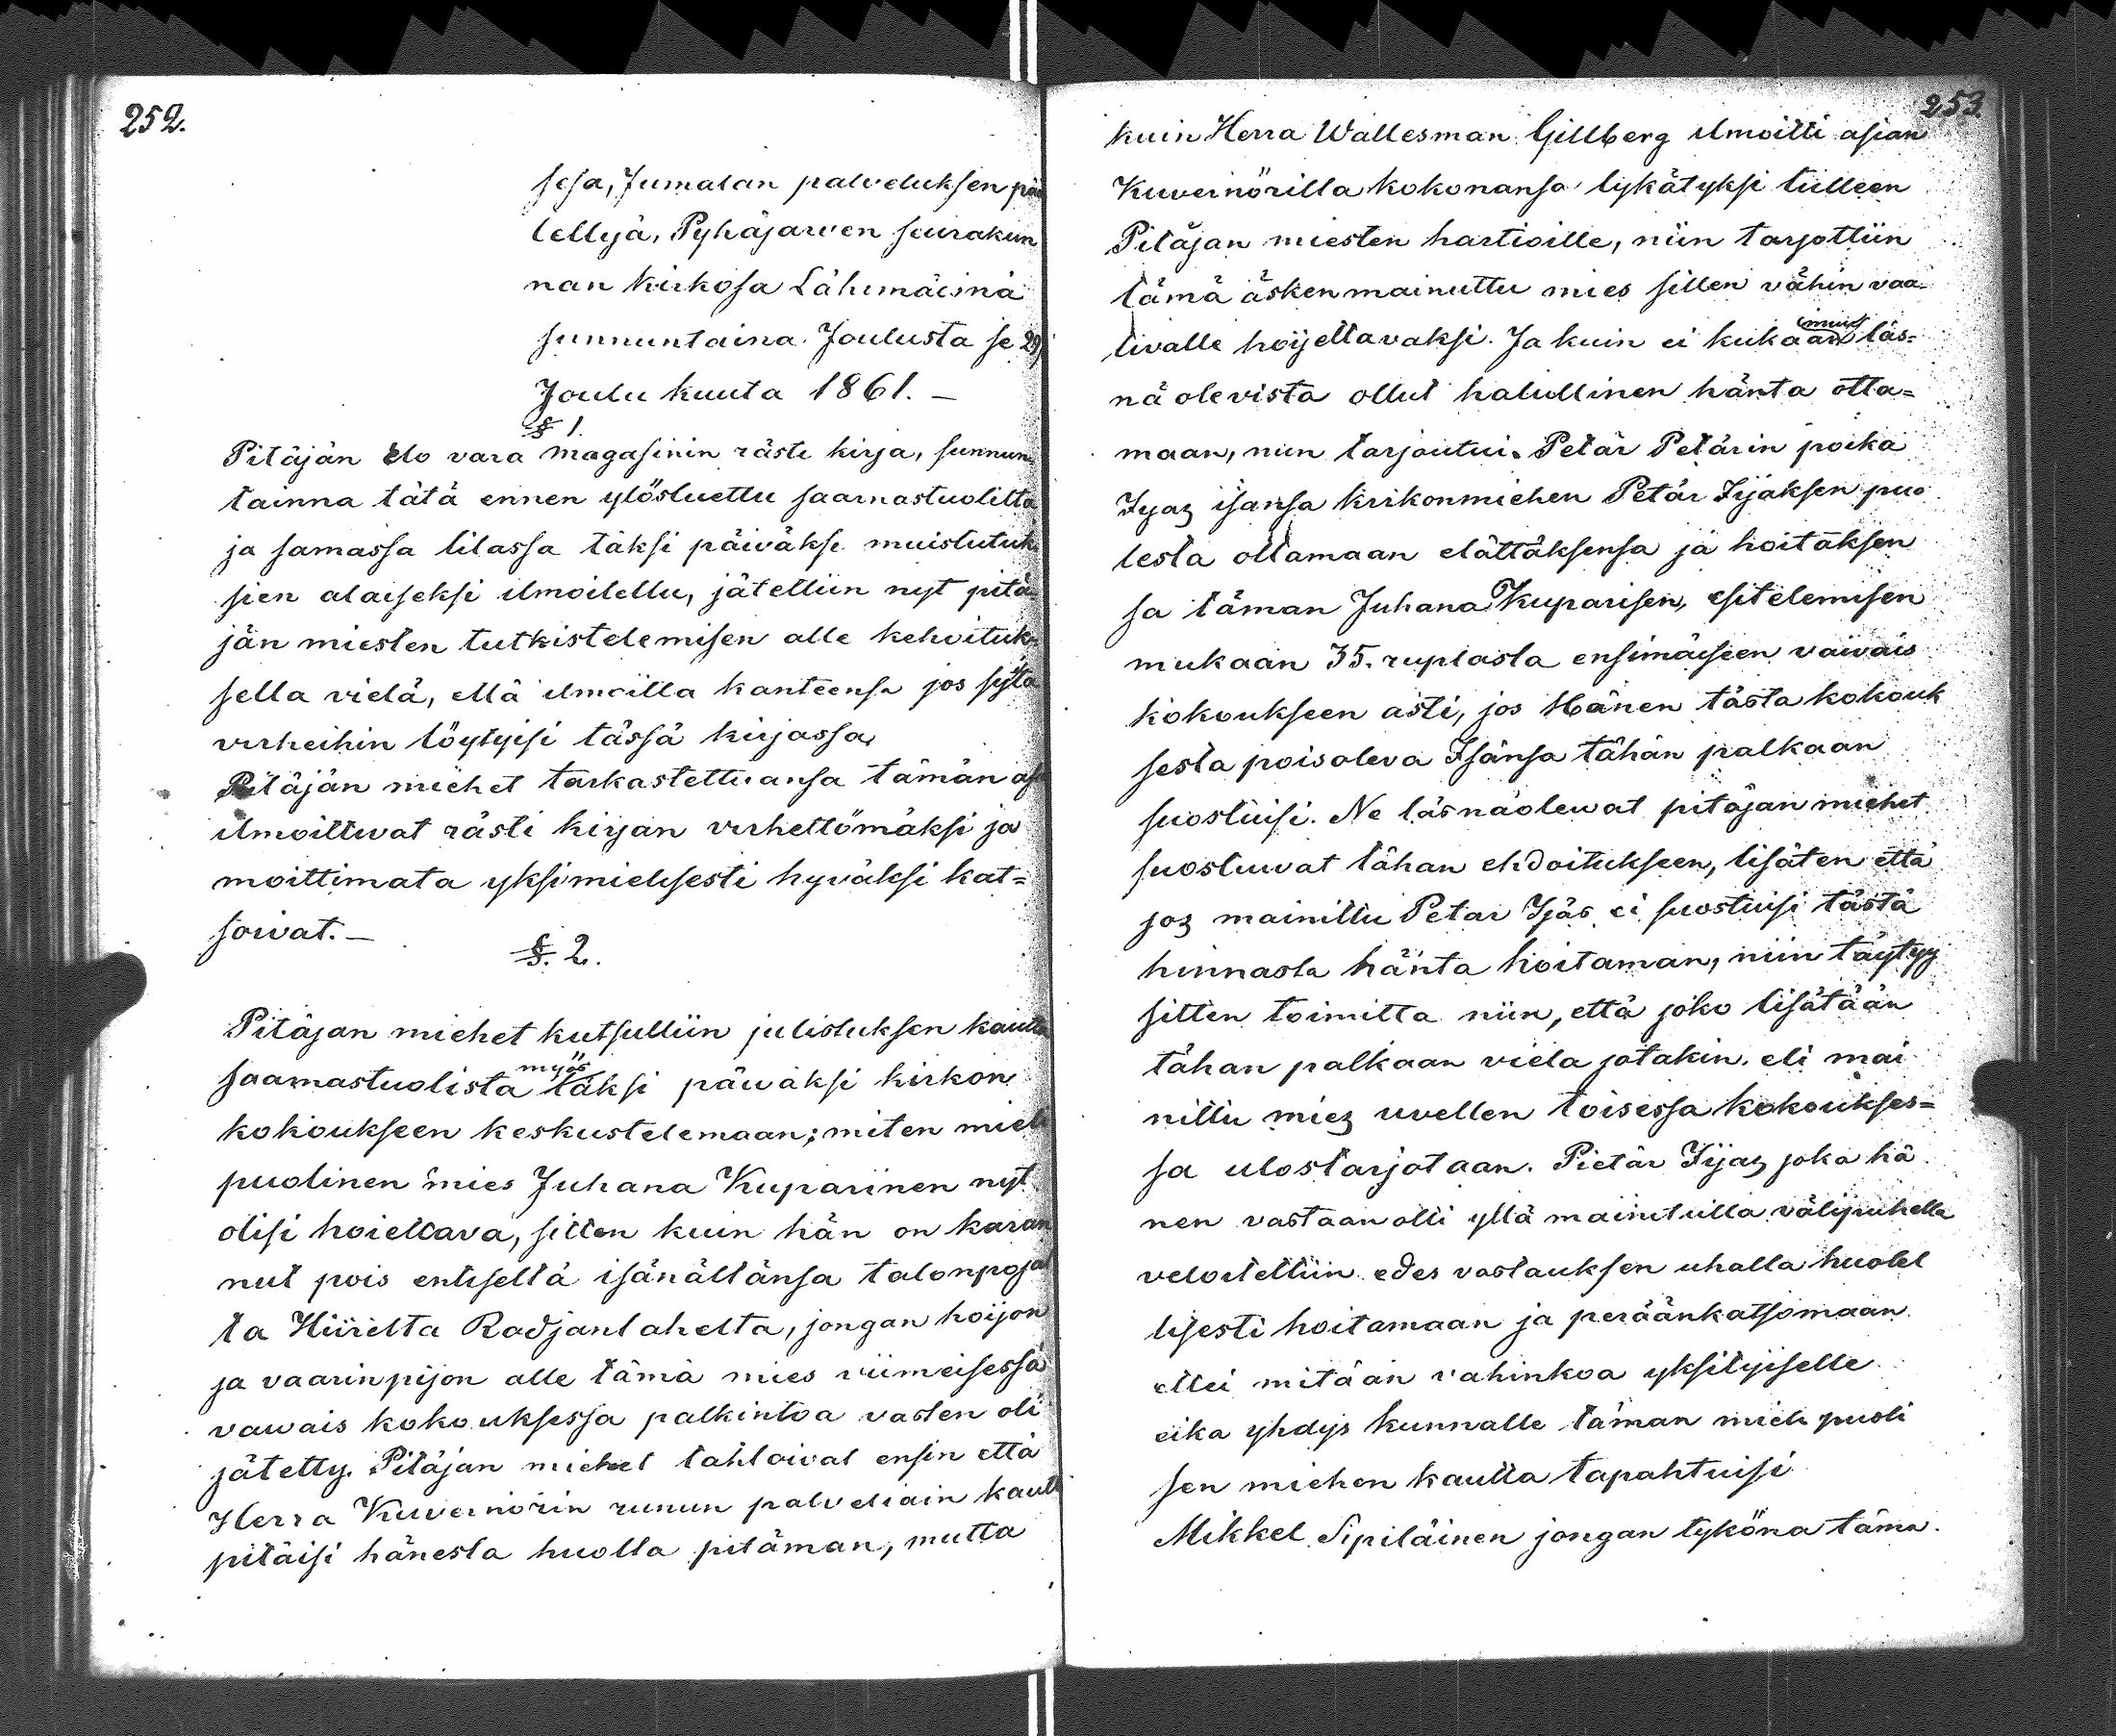 252.
sesa, Jumalan palveluksen pää
tettyä, Pyhäjarven seurakun
nan kirkosa Lähimäisnä
sunnuntaina Joulusta se 29
Joulu kuuta 1861. —
§ 1.
Pitäjän Elo vara magasinin rästi kirja, sunnun
tainna tätä ennen ylösluettu saarnastuolitta
ja samassa tilassa täksi päiväksi muistutuk
sien alaiseksi ilmoitettu, jätettiin nyt pitä
jän miesten tutkistelemisen alle kehoituk
sella vielä, että ilmoitta kanteensa jos syitä
virheihin löytyisi tässä kirjassa.
Pitäjän miehet tarkastettuansa tämän asi
ilmoittivat rästi kirjan virhettömäksi ja
moittimata yksimielisesti hyväksi kat=
soivat. —
§. 2.
Pitäjan miehet kutsuttiin julistuksen kautta
saarnastuolista myös täksi päiväksi kirkon
kokoukseen keskustelemaan; miten mieli
puolinen mies Juhana Kuparinen nyt
olisi hoiettava, sitten kuin hän on karan
nut pois entiseltä isänältänsä talonpojal
ta Hiirelta Radjanlahelta, jongan hoijon
ja vaarinpijon alle tämä mies viimeisessä
vaivais kokouksessa palkintoa vasten oli
jätetty. Pitäjan miehet tahtoivat ensin että
Herra Kuvernörin ruunun palveliain kautt
pitäisi hänesta huolta pitäman, mutta
253.
kuin Herra Wallesman Gillberg ilmoitti asian
Kuvernörilla kokonansa lykätyksi tulleen
Pitäjan miesten hartioille, niin tarjottiin
tämä äskenmainuttu mies sillen vähin vaa-
tivalle hoijettavaksi. Ja kuin ei kukaan muu läs=
nä olevista ollut halullinen hänta otta=
maan, niin tarjoutui Petär Petärin poika
Ijaz isansa kirkonmiehen Petär Iijaksen puo
lesta ottamaan elättäksensa ja hoitaksen
sa täman Juhana Kuparisen, esitelemisen
mukaan 35. ruplasta ensimäiseen vaivais
kokoukseen asti, jos Hänen tästa kokouk
sesta poisoleva Isänsa tähän palkaan
suostuisi. Ne läsnäolewat pitäjan miehet
suostuvat tähan ehdoitukseen, lisäten että
joz mainittu Petar Ijäs ei suostuisi tästä
hinnasta hänta hoitaman, niin täytyy
sitten toimitta niin, että joko lisätään
tähan palkaan viela jotakin eli mai
nittu miez uvellen toisessa kokoukses=
sa ulostarjotaan. Pietär Iijaz joka hä
nen vastaan otti yllä mainituilla välipuhella
velvoitettiin edes vastauksen uhalla huolel
lisesti hoitamaan ja peräänkatsomaan
ettei mitään vahinkoa yksityiselle
eika yhdys kunnalle täman mieli puoli
sen miehen kautta tapahtuisi
Mikkel Sipiläinen jongan tykönä tämä.